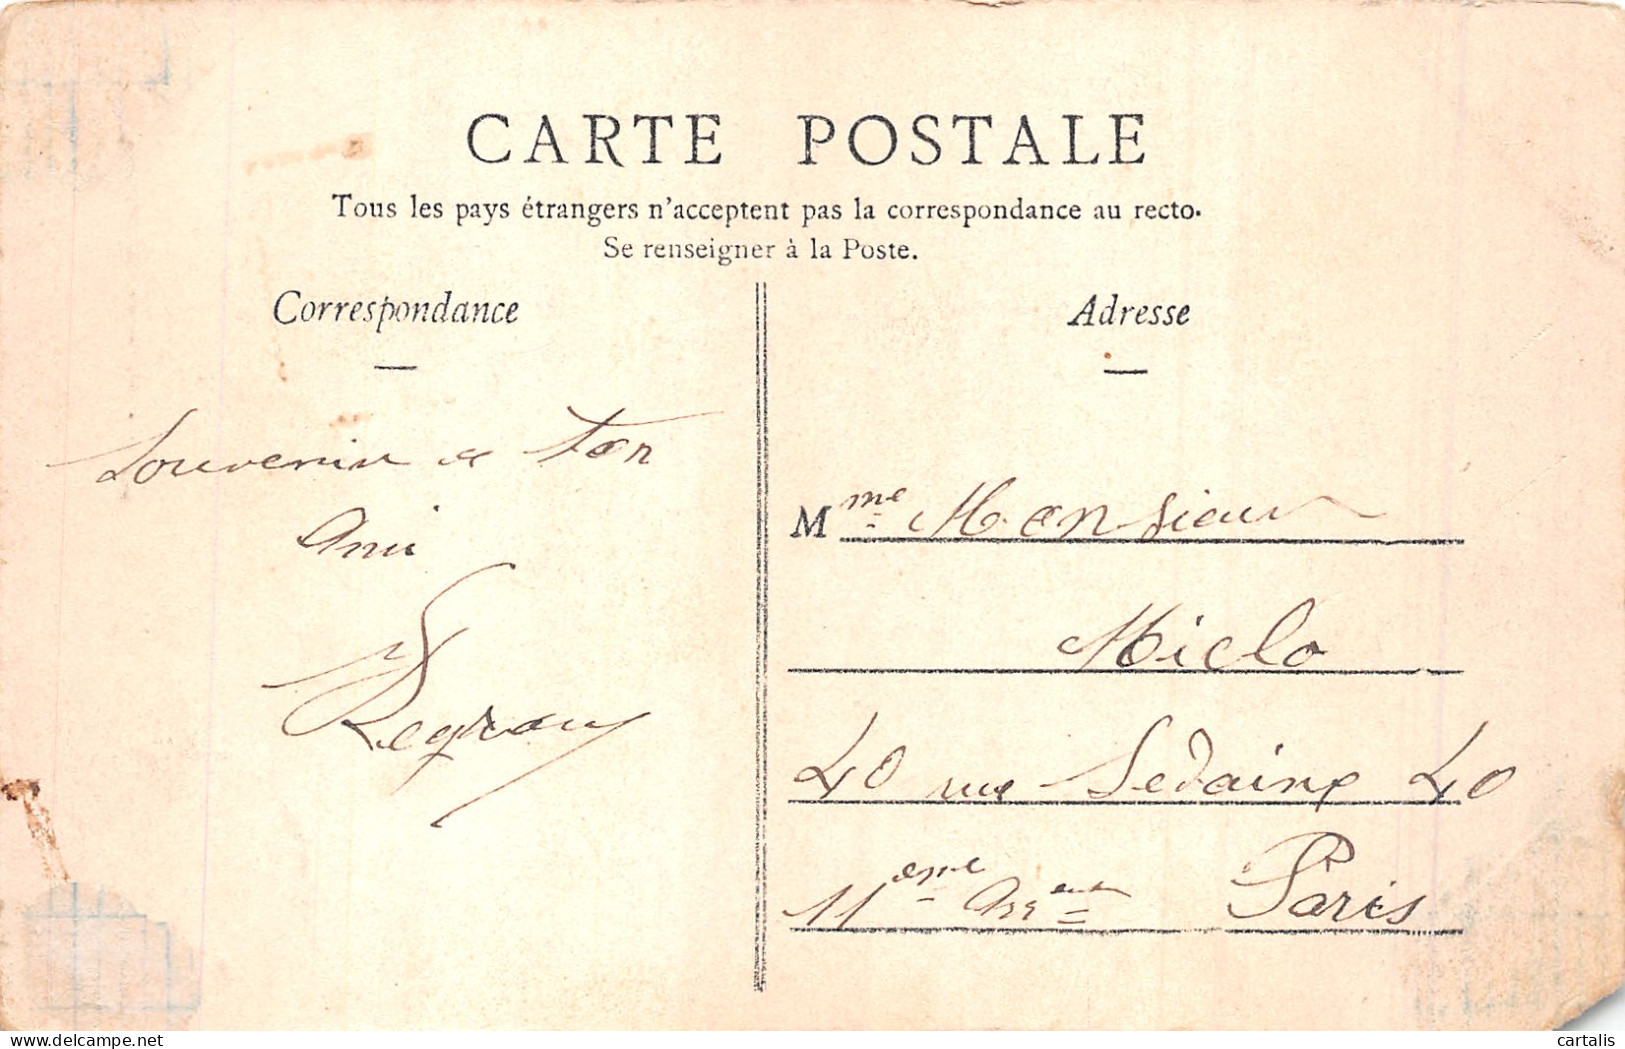 CARTE POSTALE
Tous les pays étrangers n'acceptent pas la correspondance au recto.
Se renseigner à la Poste.
Correspondance
Souvenir de ton
Ami
Adresse
Mme Monsieur
Miclo
40 rue Sedaine 40
11eme Arrent Paris
cartalis
www.delcampe.net